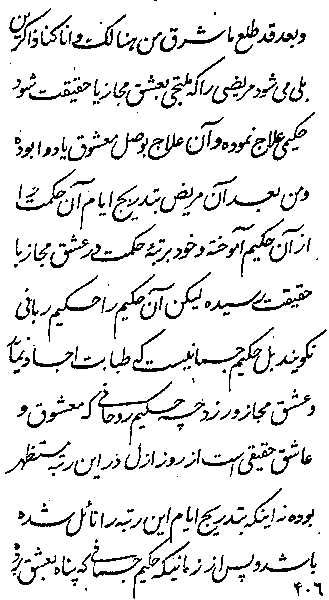 و بعد قد طلع ما شرق من هنالک و انا کنا ذاکرین
بلی می شود مریضی را که ملتجی بعشق مجاز یا حقیقت شود
حکیمی علاج نموده و آن علاج بوصل معشوق یا دوا بوده
و من بعد آن مریض بتدریج ایام آن حکمت را
از آن حکیم آموخته و خود برتبهٔ حکمت در عشق مجاز یا
حقیقت رسیده لیکن آن حکیم را حکیم ربانی
نگویند بل حکیم جسمانیست که طبابت اجساد نماید
و عشق مجاز ورزد چه حکیم روحانی که معشوق و
عاشق حقیقی است از روز ازل در این رتبه مستظهر
بوده نه اینکه بتدریج ایام این رتبه را نائل شده
باشد و پس از زمانیکه حکیم جسمانی که پناه بعشق برده
۴۰۶